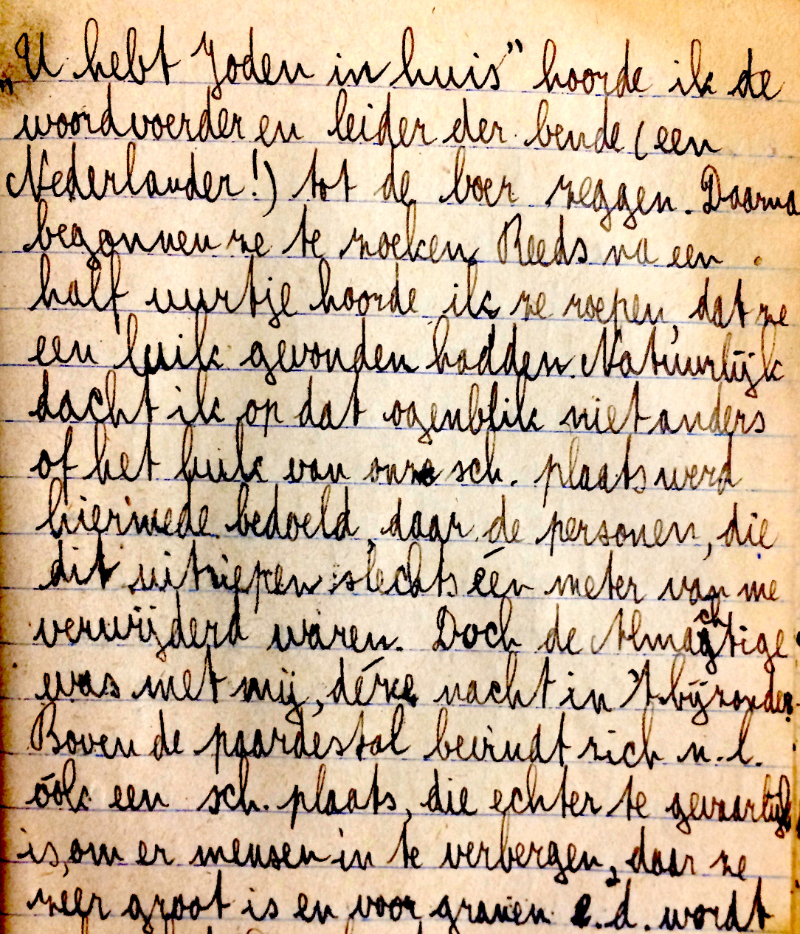 „U hebt Joden in huis” hoorde ik de
woordvoerder en leider der bende (een
Nederlander!) tot de boer zeggen. Daarna
begonnen ze te zoeken. Reeds na een
half uurtje hoorde ik ze roepen, dat ze
een luik gevonden hadden. Natuurlijk
dacht ik op dat ogenblik niet anders
of het luik van onze sch. plaats werd
hiermede bedoeld, daar de personen, die
dit uitriepen slechts één meter van me
verwijderd waren. Doch de Almachtige
was met mij, déze nacht in 't bijzonder.
Boven de paardestal bevindt zich n.l.
óók een sch. plaats, die echter te gevaarlijk
is, om er mensen in te verbergen, daar ze
zeer groot is en voor granen e.d. wordt